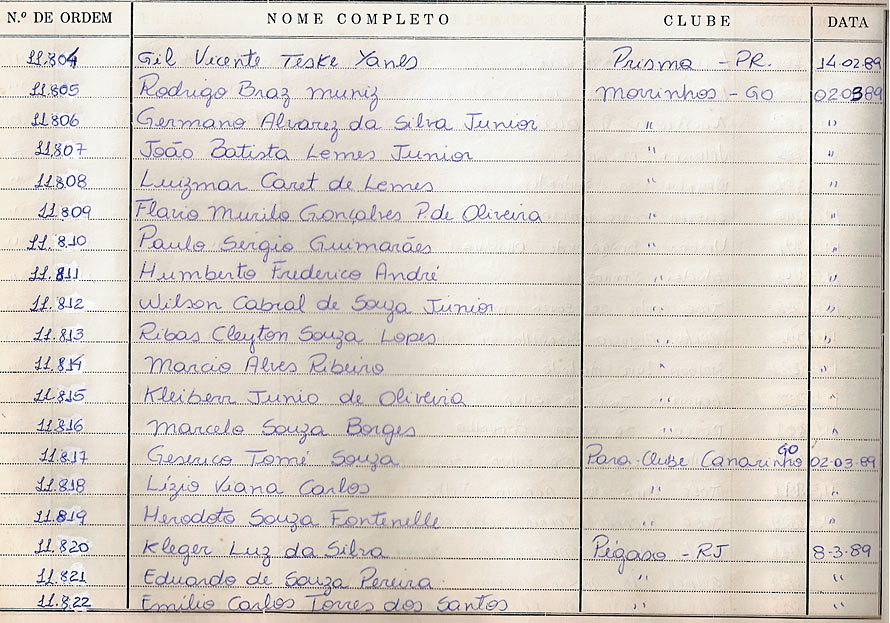 N.º DE ORDEM NOME COMPLETO CLUBE DATA
11.804 Gil Vicente Teske Yanes Prisma - PR. 14.02.89
11.805 Rodrigo Braz Muniz Morrinhos - GO 02.03.89
11.806 Germano Alvarez da Silva Junior " "
11.807 João Batista Lemes Junior " "
11.808 Luizmar Caret de Lemes " "
11.809 Flavio Murilo Gonçalves P. de Oliveira " "
11.810 Paulo Sergio Guimarães " "
11.811 Humberto Frederico André " "
11.812 Wilson Cabral de Souza Júnior " "
11.813 Ribas Cleyton Souza Lopes " "
11.814 Marcio Alves Ribeiro " "
11.815 Kleiberr Junio de Oliveira " "
11.816 Marcelo Souza Borges " "
11.817 Generico Tomé Souza Para-Clube Canarinho GO 02.03.89
11.818 Lízio Viana Carlos " "
11.819 Herodoto Souza Fontenelle " "
11.820 Kleger Luz da Silva Pégaso - RJ 8-3-89
11.821 Eduardo de Souza Pereira " "
11.822 Emílio Carlos Torres dos Santos " "